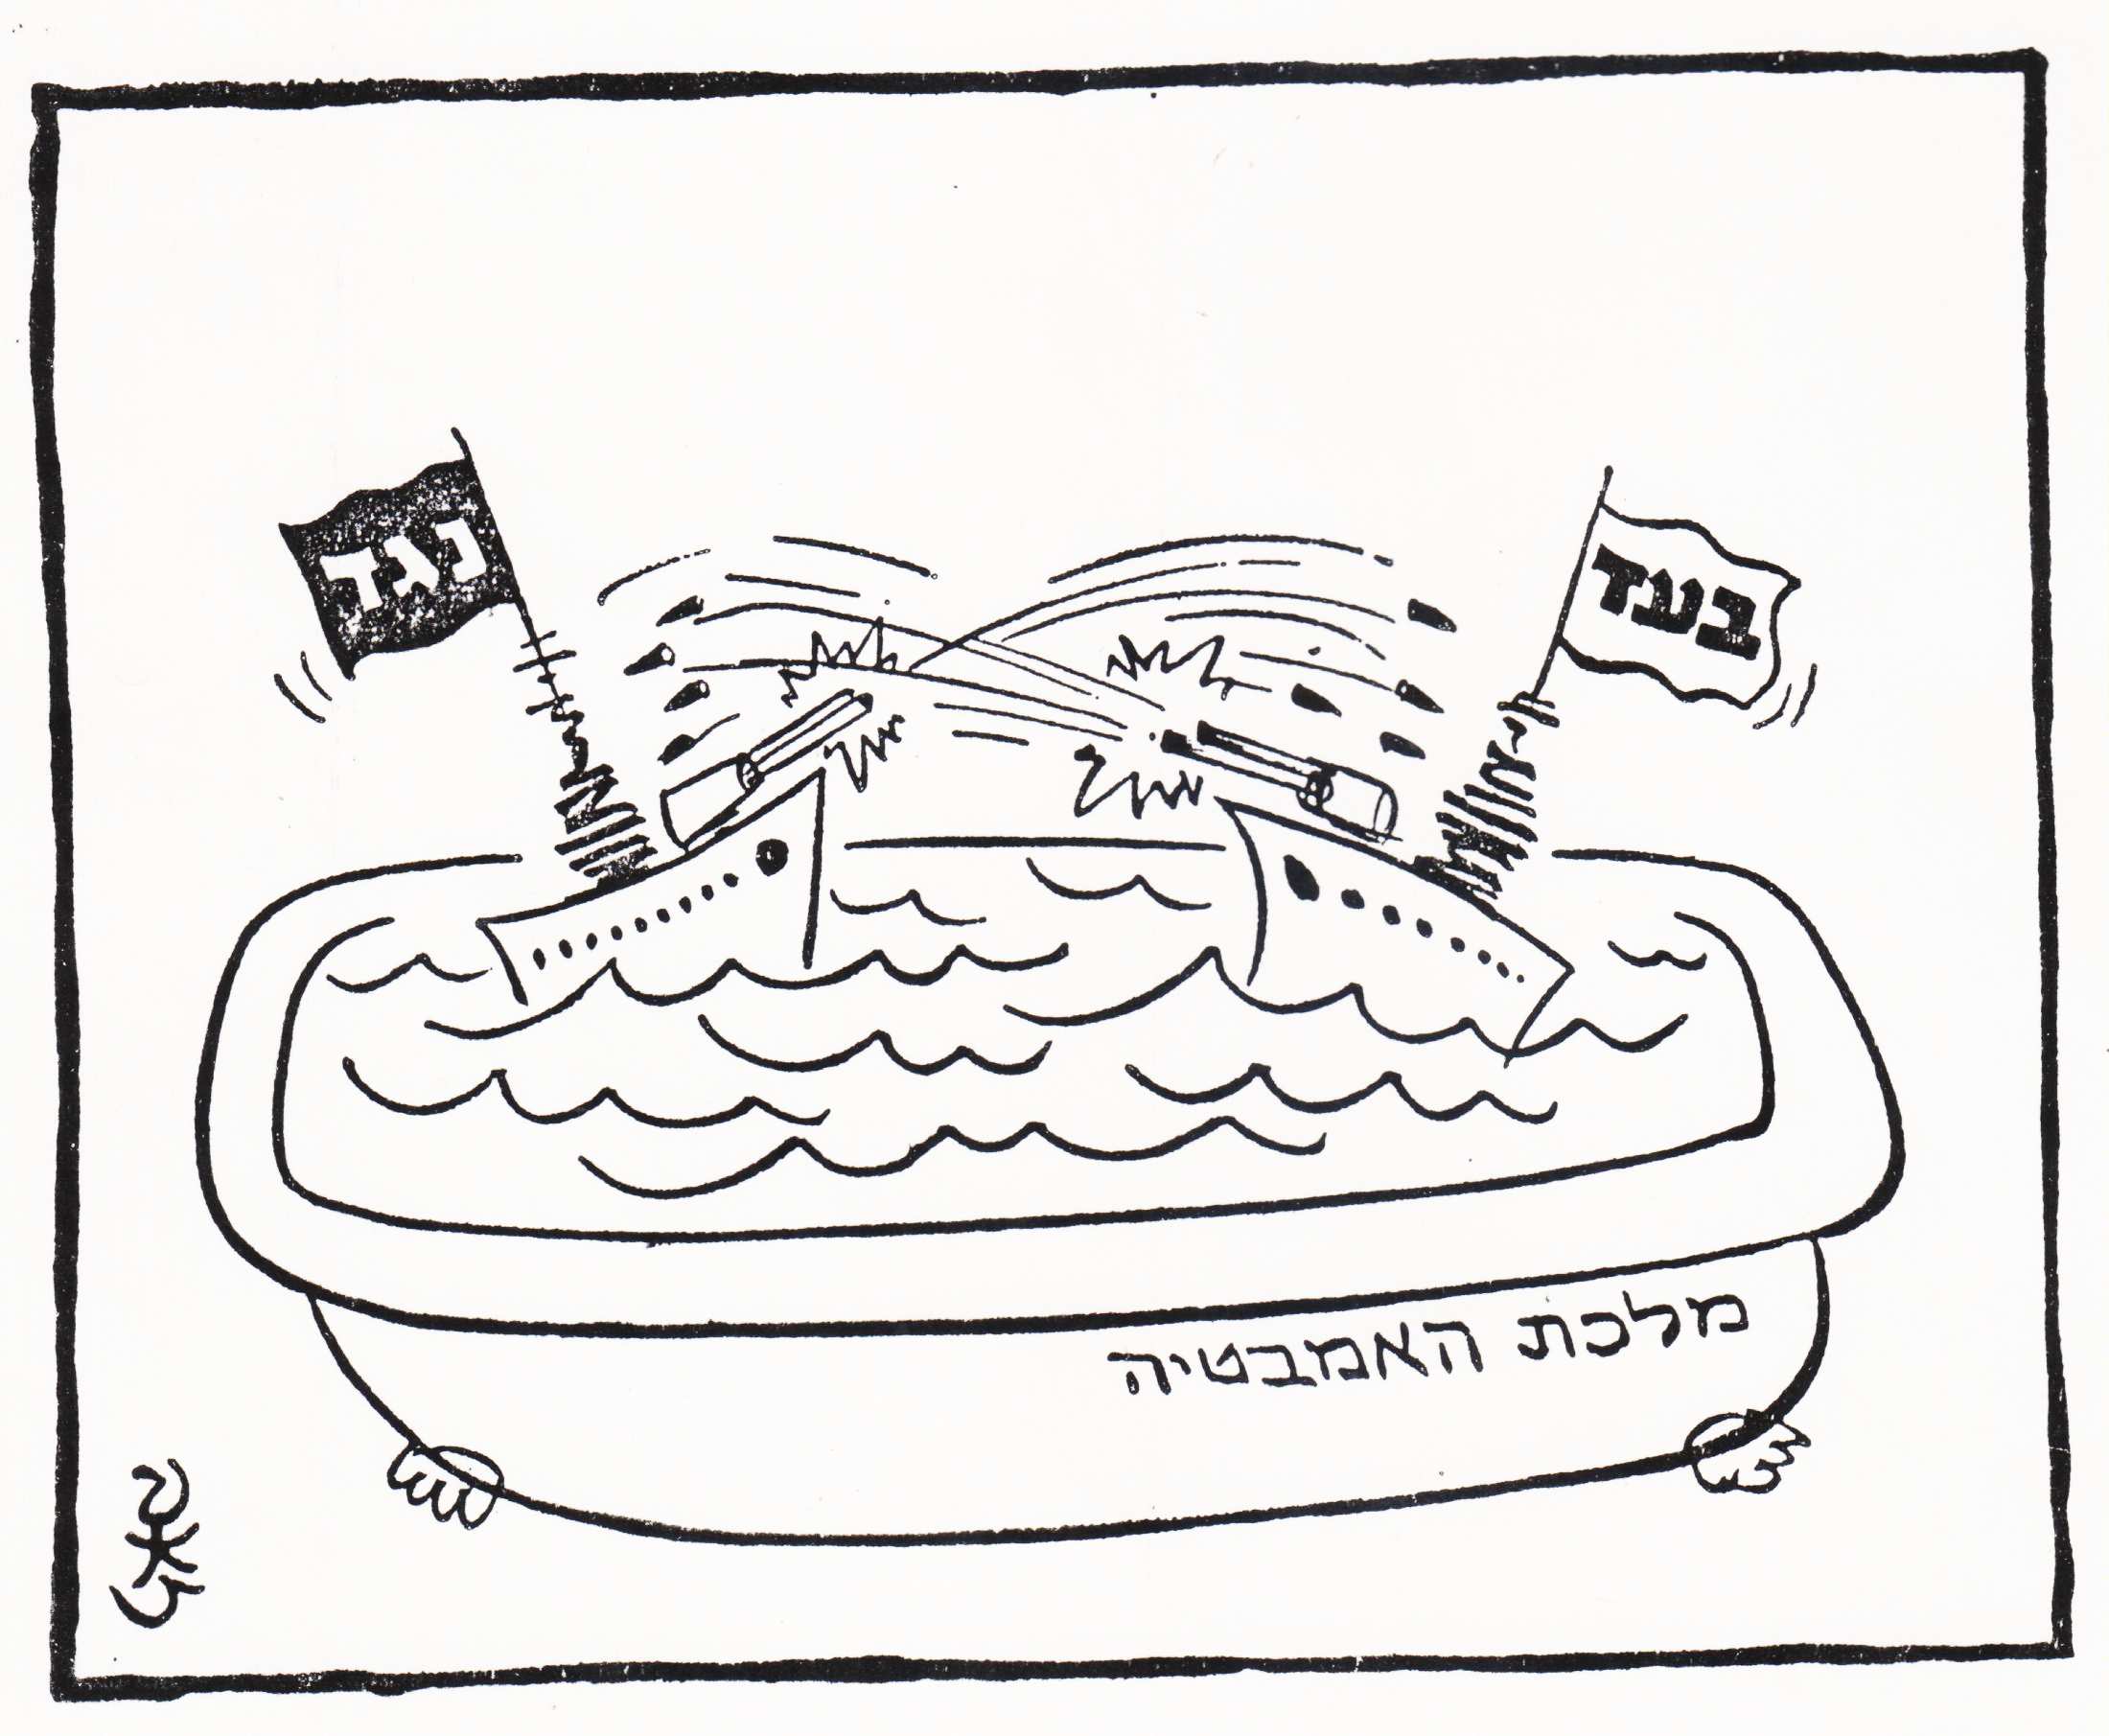 בעד
נגד
מלכת האמבטיה
זאב